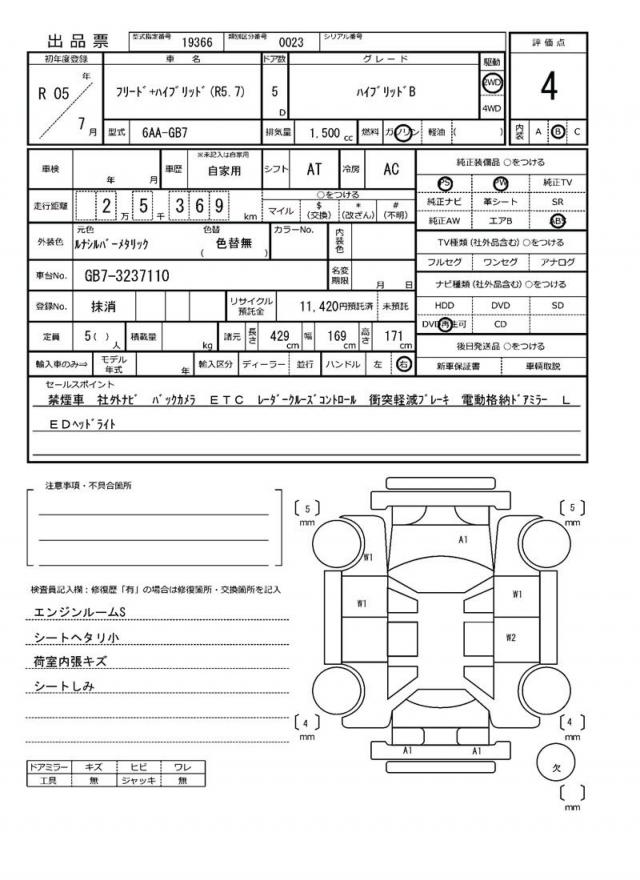 出品票
型式指定番号 19366 類別区分番号 0023 シリアル番号
初年度登録 車名 ドア数 グレード 駆動 評価点
R 05 年 7 月 フリード+ハイブリッド(R5.7) 5 D ハイブリッドB 2WD 4WD 4
型式 6AA-GB7 排気量 1.500 cc 燃料 ガソリン 軽油 ( ) 内装 A B C
車検 年 月 車歴 ※未記入は自家用 自家用 シフト AT 冷房 AC
走行距離 2 万 5 千 3 6 9 km
○をつける
マイル $ (交換) * (改ざん) # (不明)
外装色 元色 ルナシルバーメタリック 色替 ( 色替無 ) カラーNo. 内装色
車台No. GB7-3237110 名変期限 月 日
登録No. 抹消 リサイクル預託金 11,420円預託済 未預託
定員 5( ) 人 積載量 kg 諸元 長さ 429 cm 幅 169 cm 高さ 171 cm
輸入車のみ⇒ モデル年式 年 輸入区分 ディーラー 並行 ハンドル 左 右
純正装備品 ○をつける
PS PW 純正TV
純正ナビ 革シート SR
純正AW エアB ABS
TV種類(社外品含む) ○をつける
フルセグ ワンセグ アナログ
ナビ種類(社外品含む) ○をつける
HDD DVD SD
DVD再生可 CD
後日発送品 ○をつける
新車保証書 車輌取説
セールスポイント
禁煙車 社外ナビ バックカメラ ETC レーダークルーズコントロール 衝突軽減ブレーキ 電動格納ドアミラー L
EDヘッドライト
注意事項・不具合箇所
検査員記入欄:修復歴「有」の場合は修復箇所・交換箇所を記入
エンジンルームS
シートヘタリ小
荷室内張キズ
シートしみ
ドアミラー キズ ヒビ ワレ
工具 無 ジャッキ 無
〔 5 〕 mm
〔 5 〕 mm
A1
W1
W1
W1
W2
〔 4 〕 mm
〔 4 〕 mm
A1 A1
欠
〔 〕 mm